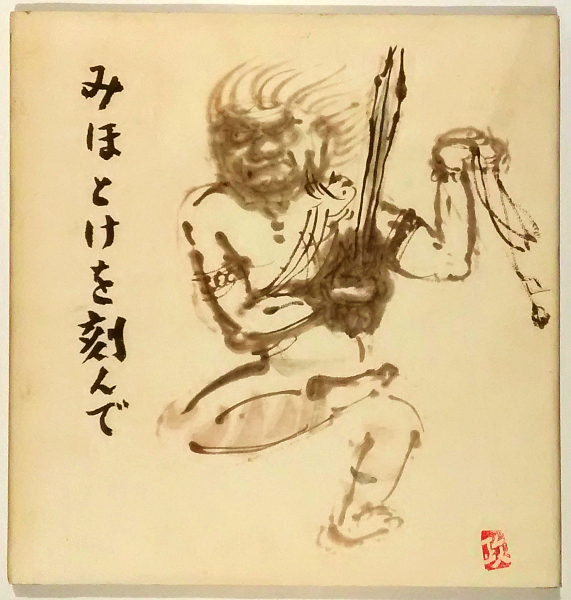 みほとけを刻んで
政